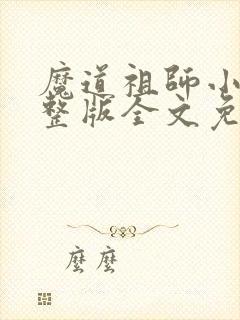 魔道祖師小
整版全文免
麼麼